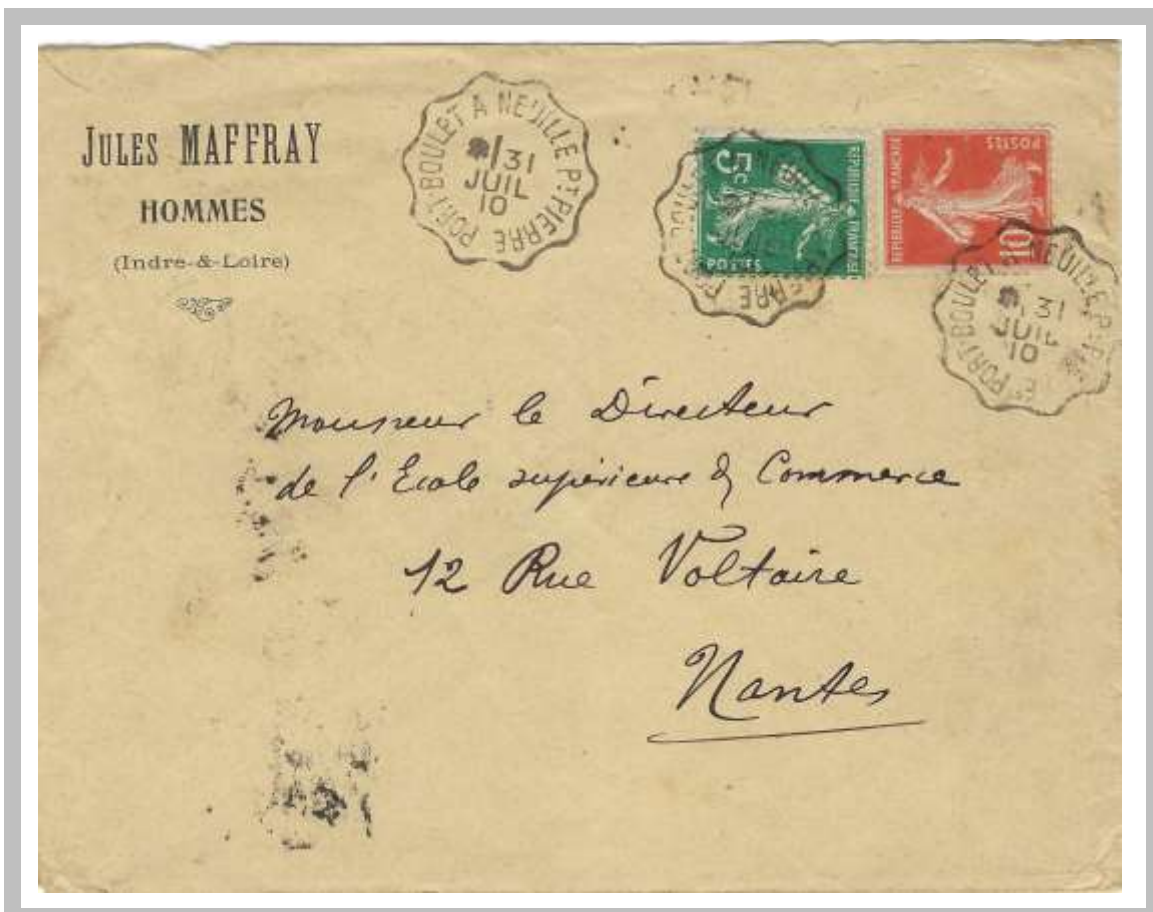 JULES MAFFRAY
HOMMES
(Indre-&-Loire)
PORT-BOULET A NEUILLE Pt PIERRE
31
JUIL
10
5c
REPUBLIQUE FRANÇAISE
POSTES
REPUBLIQUE FRANÇAISE
POSTES
10
PORT-BOULET A NEUILLE Pt
31
JUIL
10
Monsieur le Directeur
de l'Ecole supérieure de Commerce
12 Rue Voltaire
Nantes